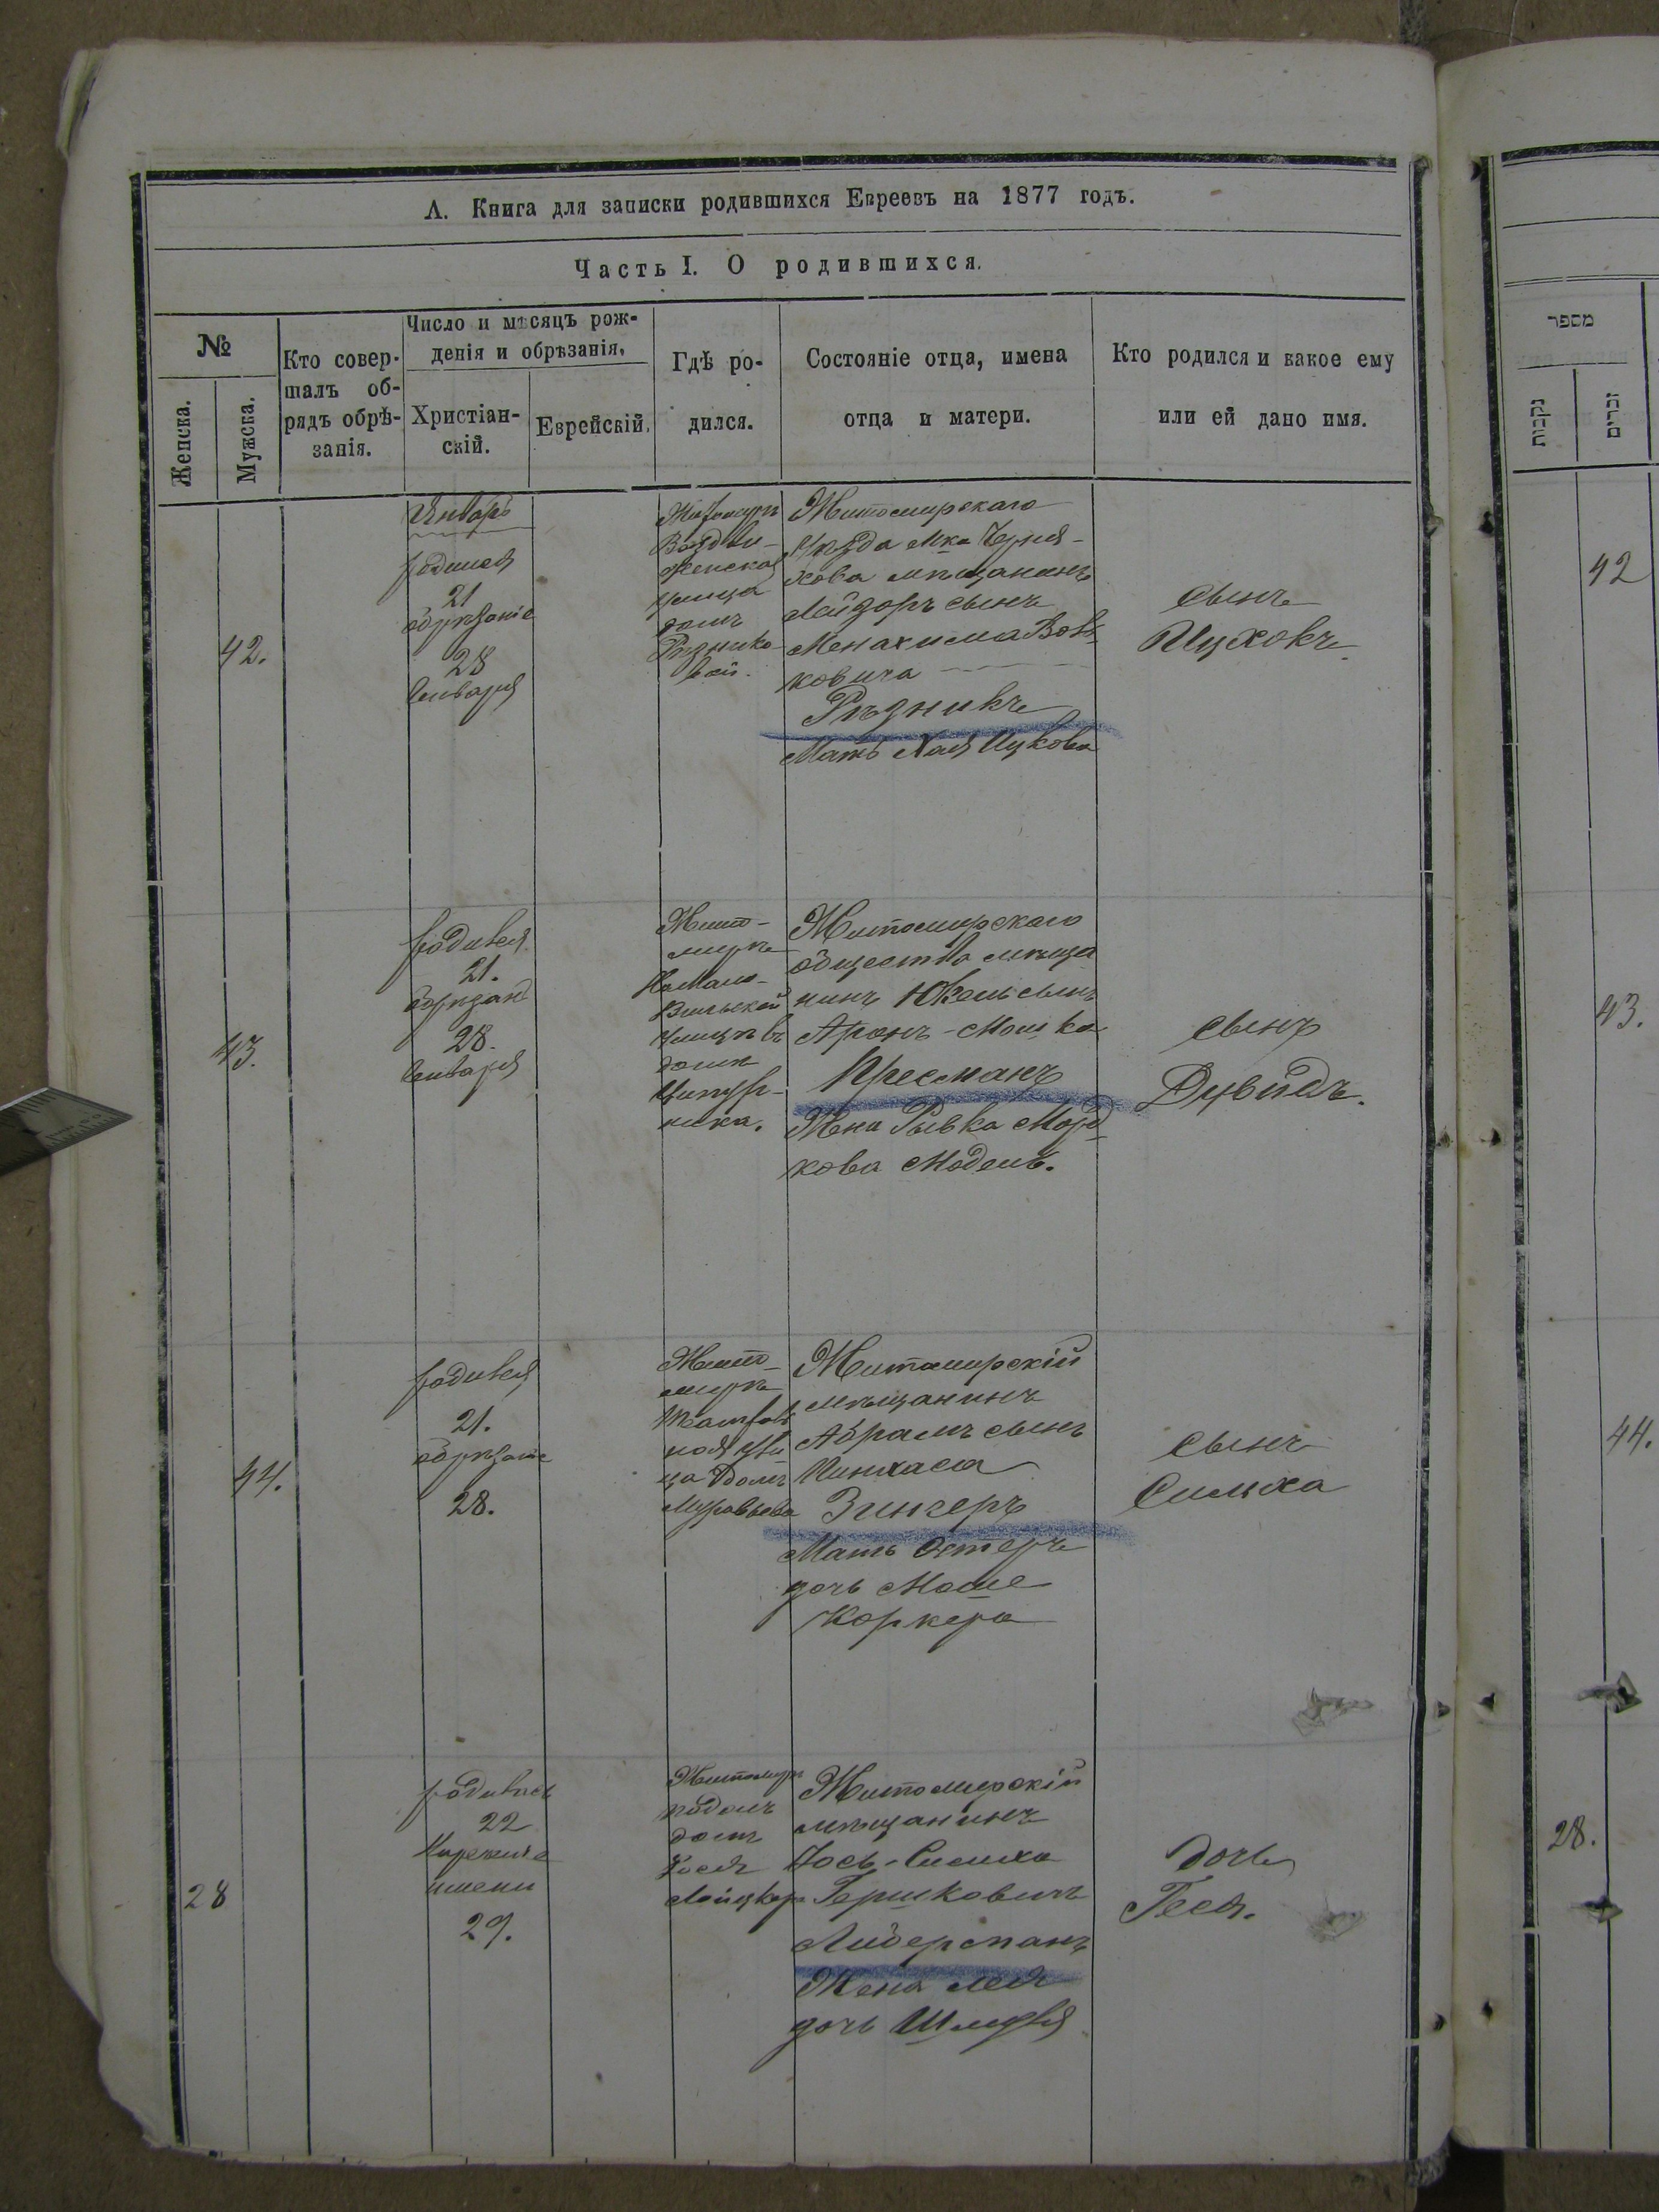 А. Книга для записки родившихся Евреевъ на 1877 годъ.
Часть I. О родившихся.
№
Женска.
Мужска.
Кто совер-
шалъ об-
рядъ обрѣ-
занія.
Число и мѣсяцъ рож-
денія и обрѣзанія.
Христіан-
скій.
Еврейскій.
Гдѣ ро-
дился.
Состояніе отца, имена
отца и матери.
Кто родился и какое ему
или ей дано имя.
42.
Январь
родился
21
обрѣзаніе
28
Января
Житомиръ
Воздви-
женская
улица
домъ
Рѣзнико-
вой.
Житомирскаго
Уѣзда Мка Черня-
хова мѣщанинъ
Лейзоръ сынъ
Менахима Воль-
ковича
Рѣзникъ
Мать Хая Ицкова
сынъ
Ицхокъ
43.
родился
21.
обрѣзан
28.
Января
Жито-
миръ
Вильской
улицѣ въ
домѣ
Житомирскаго
общества мѣща
нинъ Юкель сынъ
Аронъ-Мошка
Пресманъ
Жена Рывка Морд-
кова
сынъ
Дувидъ.
44.
родился
21.
обрѣзаніе
28.
Жито-
миръ
ца домъ
Муравьева
Житомирскій
мѣщанинъ
Абрамъ сынъ
Пинхаса
Зингеръ
Мать Эстеръ
дочь Моше
Коркера
сынъ
Симха
28
родилась
22
Нареченіе
имени
29.
Житомиръ
подолъ
домъ
Житомирскій
мѣщанинъ
Іось-Симха
Гершковичъ
Лидерманъ
Жена Лея
дочь
дочь
Геся.
מספר
נקבות
זכרים
42
43.
44.
28.